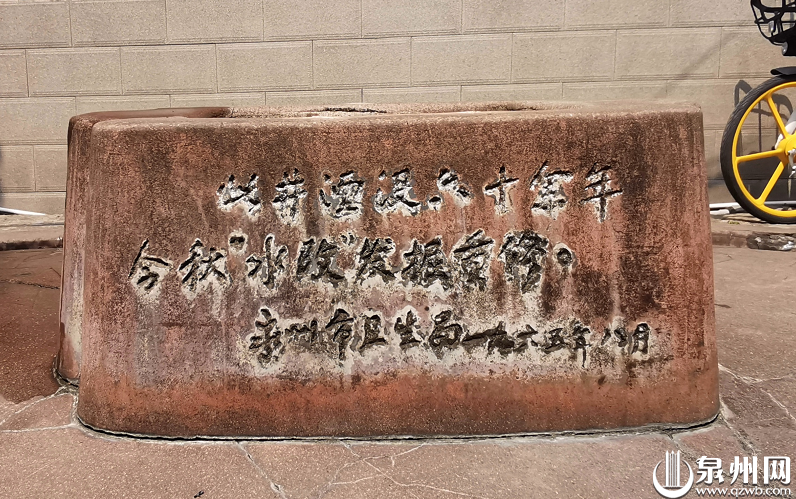 此井湮没六十余年
今秋"水改"发掘重修。
泉州市卫生局一九六五年八月
泉州网
www.qzwb.com